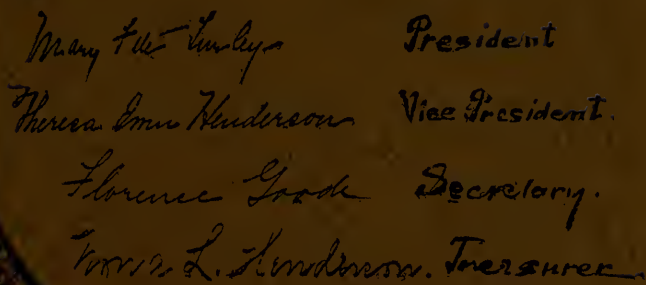 Mary President
Theresa Henderson Vice President.
Florence Goode Secretary.
L. Henderson. Treasurer